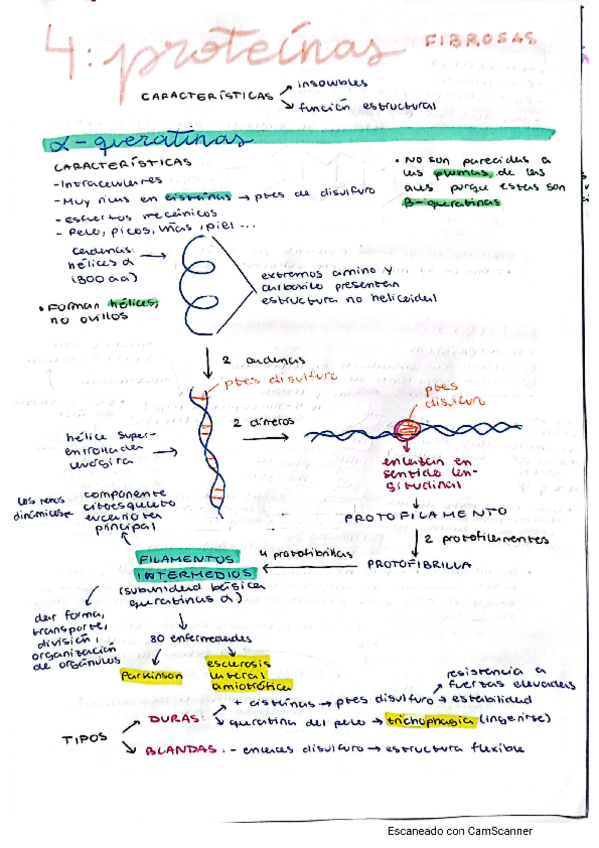 4: proteínas FIBROSAS
CARACTERÍSTICAS
insolubles
función estructural
α-queratinas
CARACTERÍSTICAS
- Intracelulares
- Muy ricas en cisteínas → ptes de disulfuro
- esfuertos mecánicos
- Pelo, picos, uñas, piel ...
• NO son parecidas a
las plumas de las
aves porque estas son
β-queratinas
cadenas:
hélices α
(300 aa)
extremos amino y
carboxilo presentan
estructura no helicoidal
• Forman hélices,
no ovillos
2 cadenas
ptes disulfuro
2 dímeros
ptes
disulfuro
hélice super-
enrollada
levógira
enlazan en
sentido lon-
gitudinal
los menos
dinámicos
componente
citoesqueleto
eucariota
principal
PROTOFILAMENTO
2 protofilamentos
PROTOFIBRILLA
4 protofibrillas
FILAMENTOS
INTERMEDIOS
(subunidad básica
queratinas α)
dar forma,
transporte,
división,
organización
de orgánulos
80 enfermedades
Parkinson
esclerosis
lateral
amiotrófica
TIPOS
DURAS:
+ cisteínas → ptes disulfuro → estabilidad
resistencia a
fuerzas elevadas
queratina del pelo → trichophagia (ingerirse)
BLANDAS: - enlaces disulfuro → estructura flexible
Escaneado con CamScanner